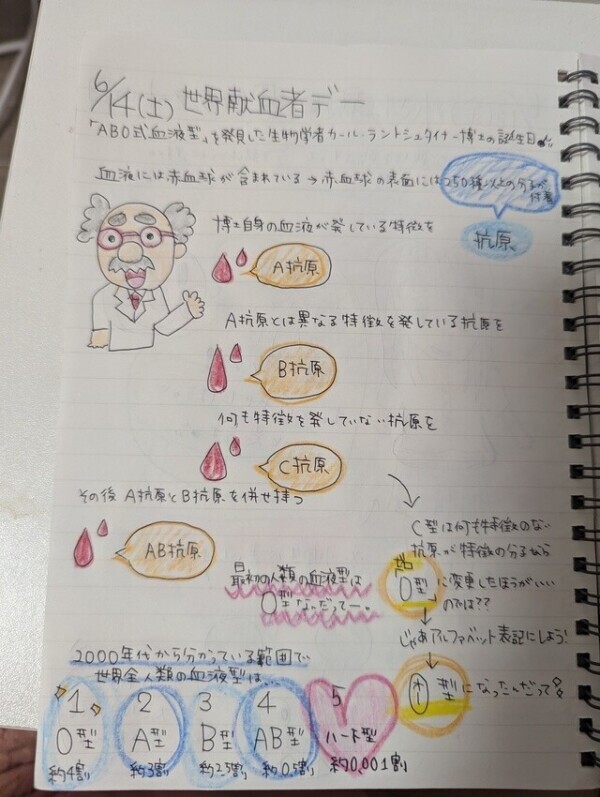 6/14(土) 世界献血者デー
「ABO式血液型」を発見した生物学者カール・ラントシュタイナー博士の誕生日
血液には赤血球が含まれている→赤血球の表面には250種以上の分子が
付着
抗原
博士自身の血液が発している特徴を
A抗原
A抗原とは異なる特徴を発している抗原を
B抗原
何も特徴を発していない抗原を
C抗原
その後 A抗原とB抗原を併せ持つ
AB抗原
C型は何も特徴のない
抗原が特徴の分るなら
0型 に変更したほうがいい
のでは??
↓
じゃあアルファベット表記にしよう!
↓
型になったんだって
最初の人類の血液型は
O型なんだってー。
2000年代から分かっている範囲で
世界全人類の血液型は…
1 2 3 4 5
O型 A型 B型 AB型 ハート型
約4割 約3割 約2.5割 約0.5割 約0.001割